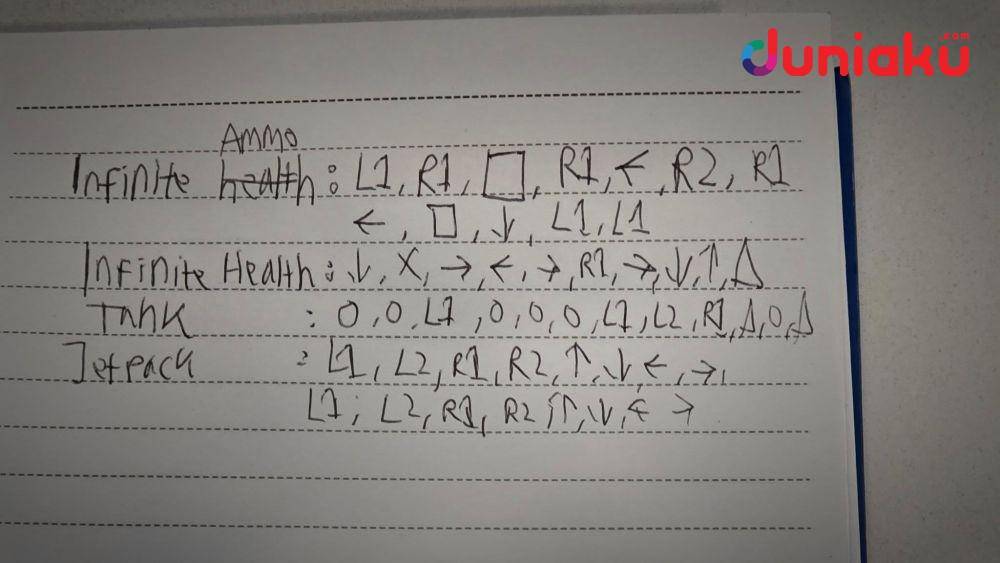 duniaku.com
AMMO
Infinite health : L1, R1, □, R1, ←, R2, R1
←, □, ↓, L1, L1
Infinite Health : ↓, X, →, ←, →, R1, →, ↓, ↑, Δ
Tank : O, O, L1, O, O, O, L1, L2, R1, Δ, O, Δ
Jetpack : L1, L2, R1, R2, ↑, ↓, ←, →,
L1, L2, R1, R2, ↑, ↓, ← →